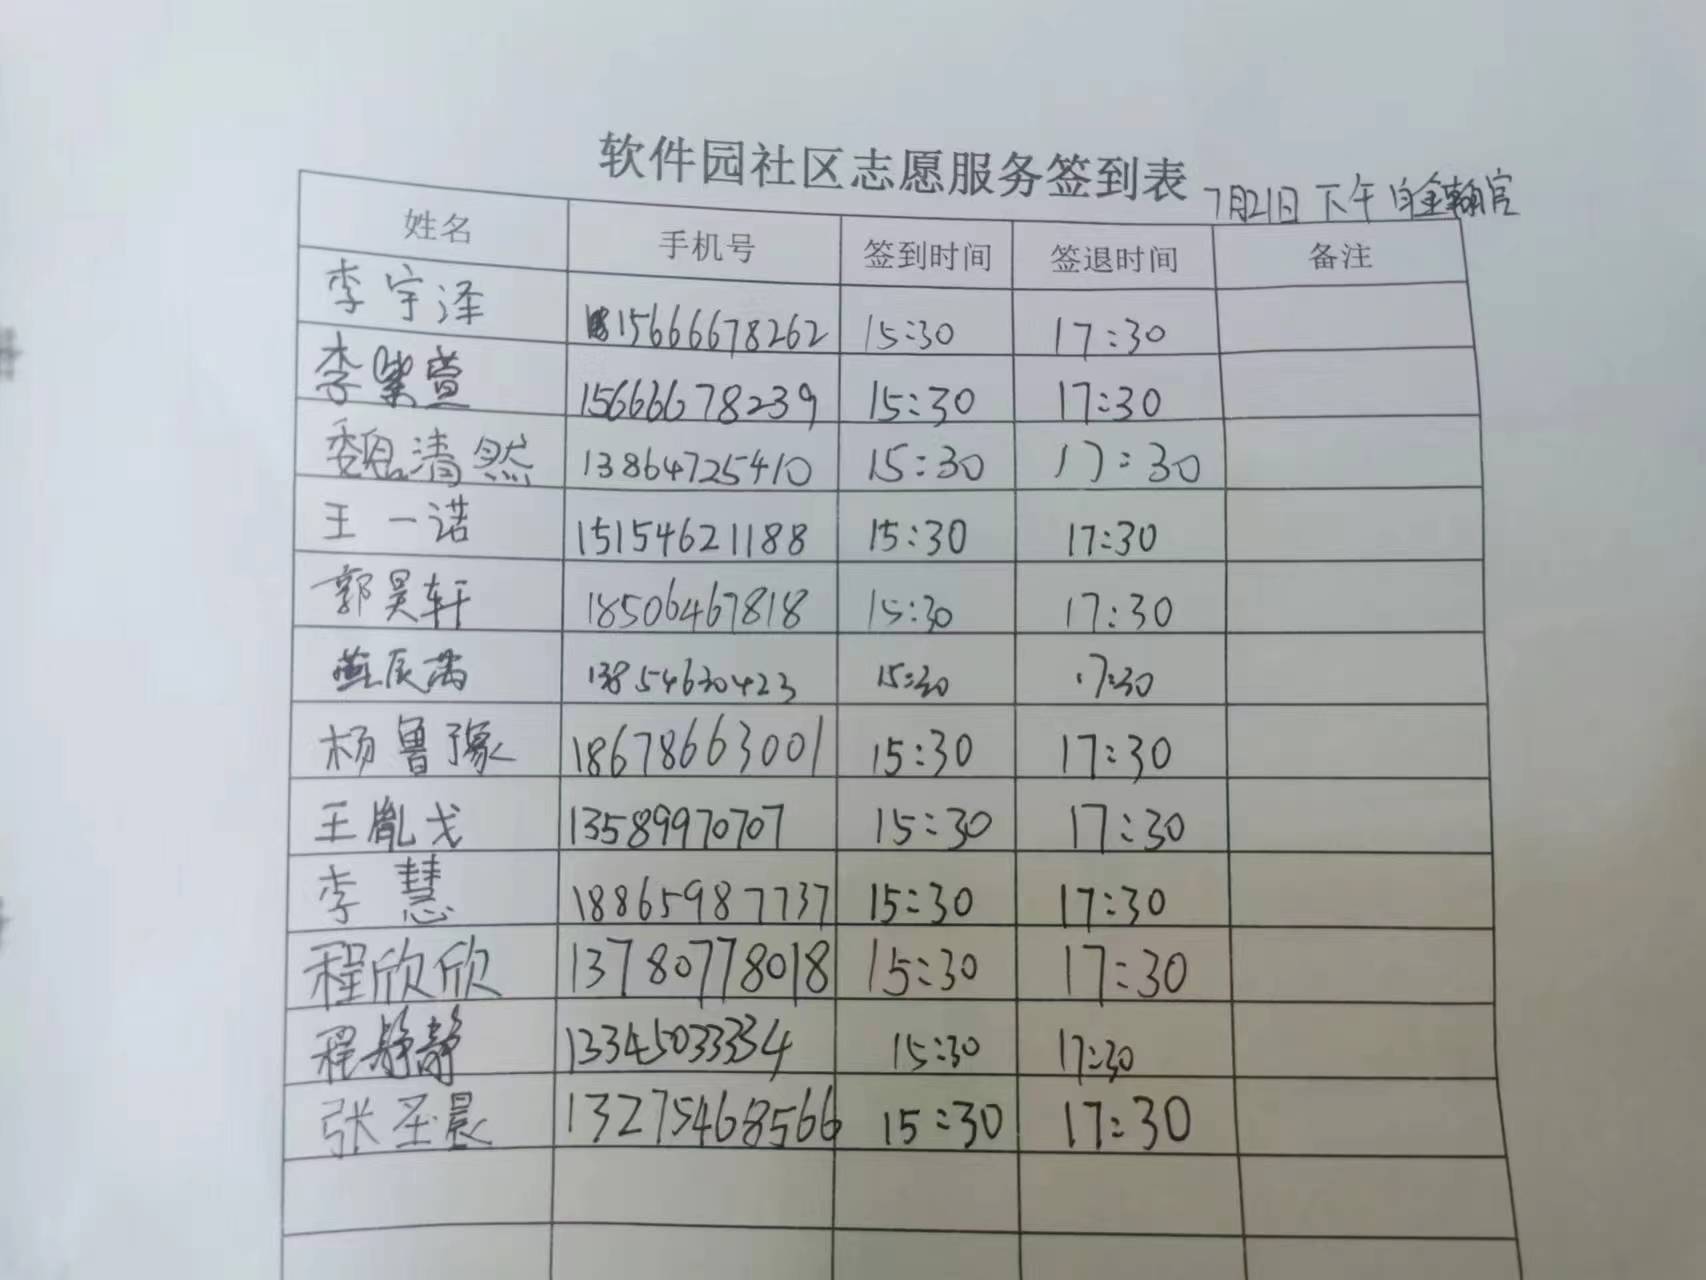 软件园社区志愿服务签到表
7月21日 下午 白金翰宫
姓名 手机号 签到时间 签退时间 备注
李宇泽 15666678262 15:30 17:30
李紫萱 15666678239 15:30 17:30
魏清然 13864725410 15:30 17:30
王一诺 15154621188 15:30 17:30
郭昊轩 18506467818 15:30 17:30
13854630423 15:30 17:30
杨鲁豫 18678663001 15:30 17:30
王胤戈 13589970707 15:30 17:30
李慧 18865987737 15:30 17:30
程欣欣 13780778018 15:30 17:30
程静静 13345033334 15:30 17:30
张圣晨 13275468566 15:30 17:30